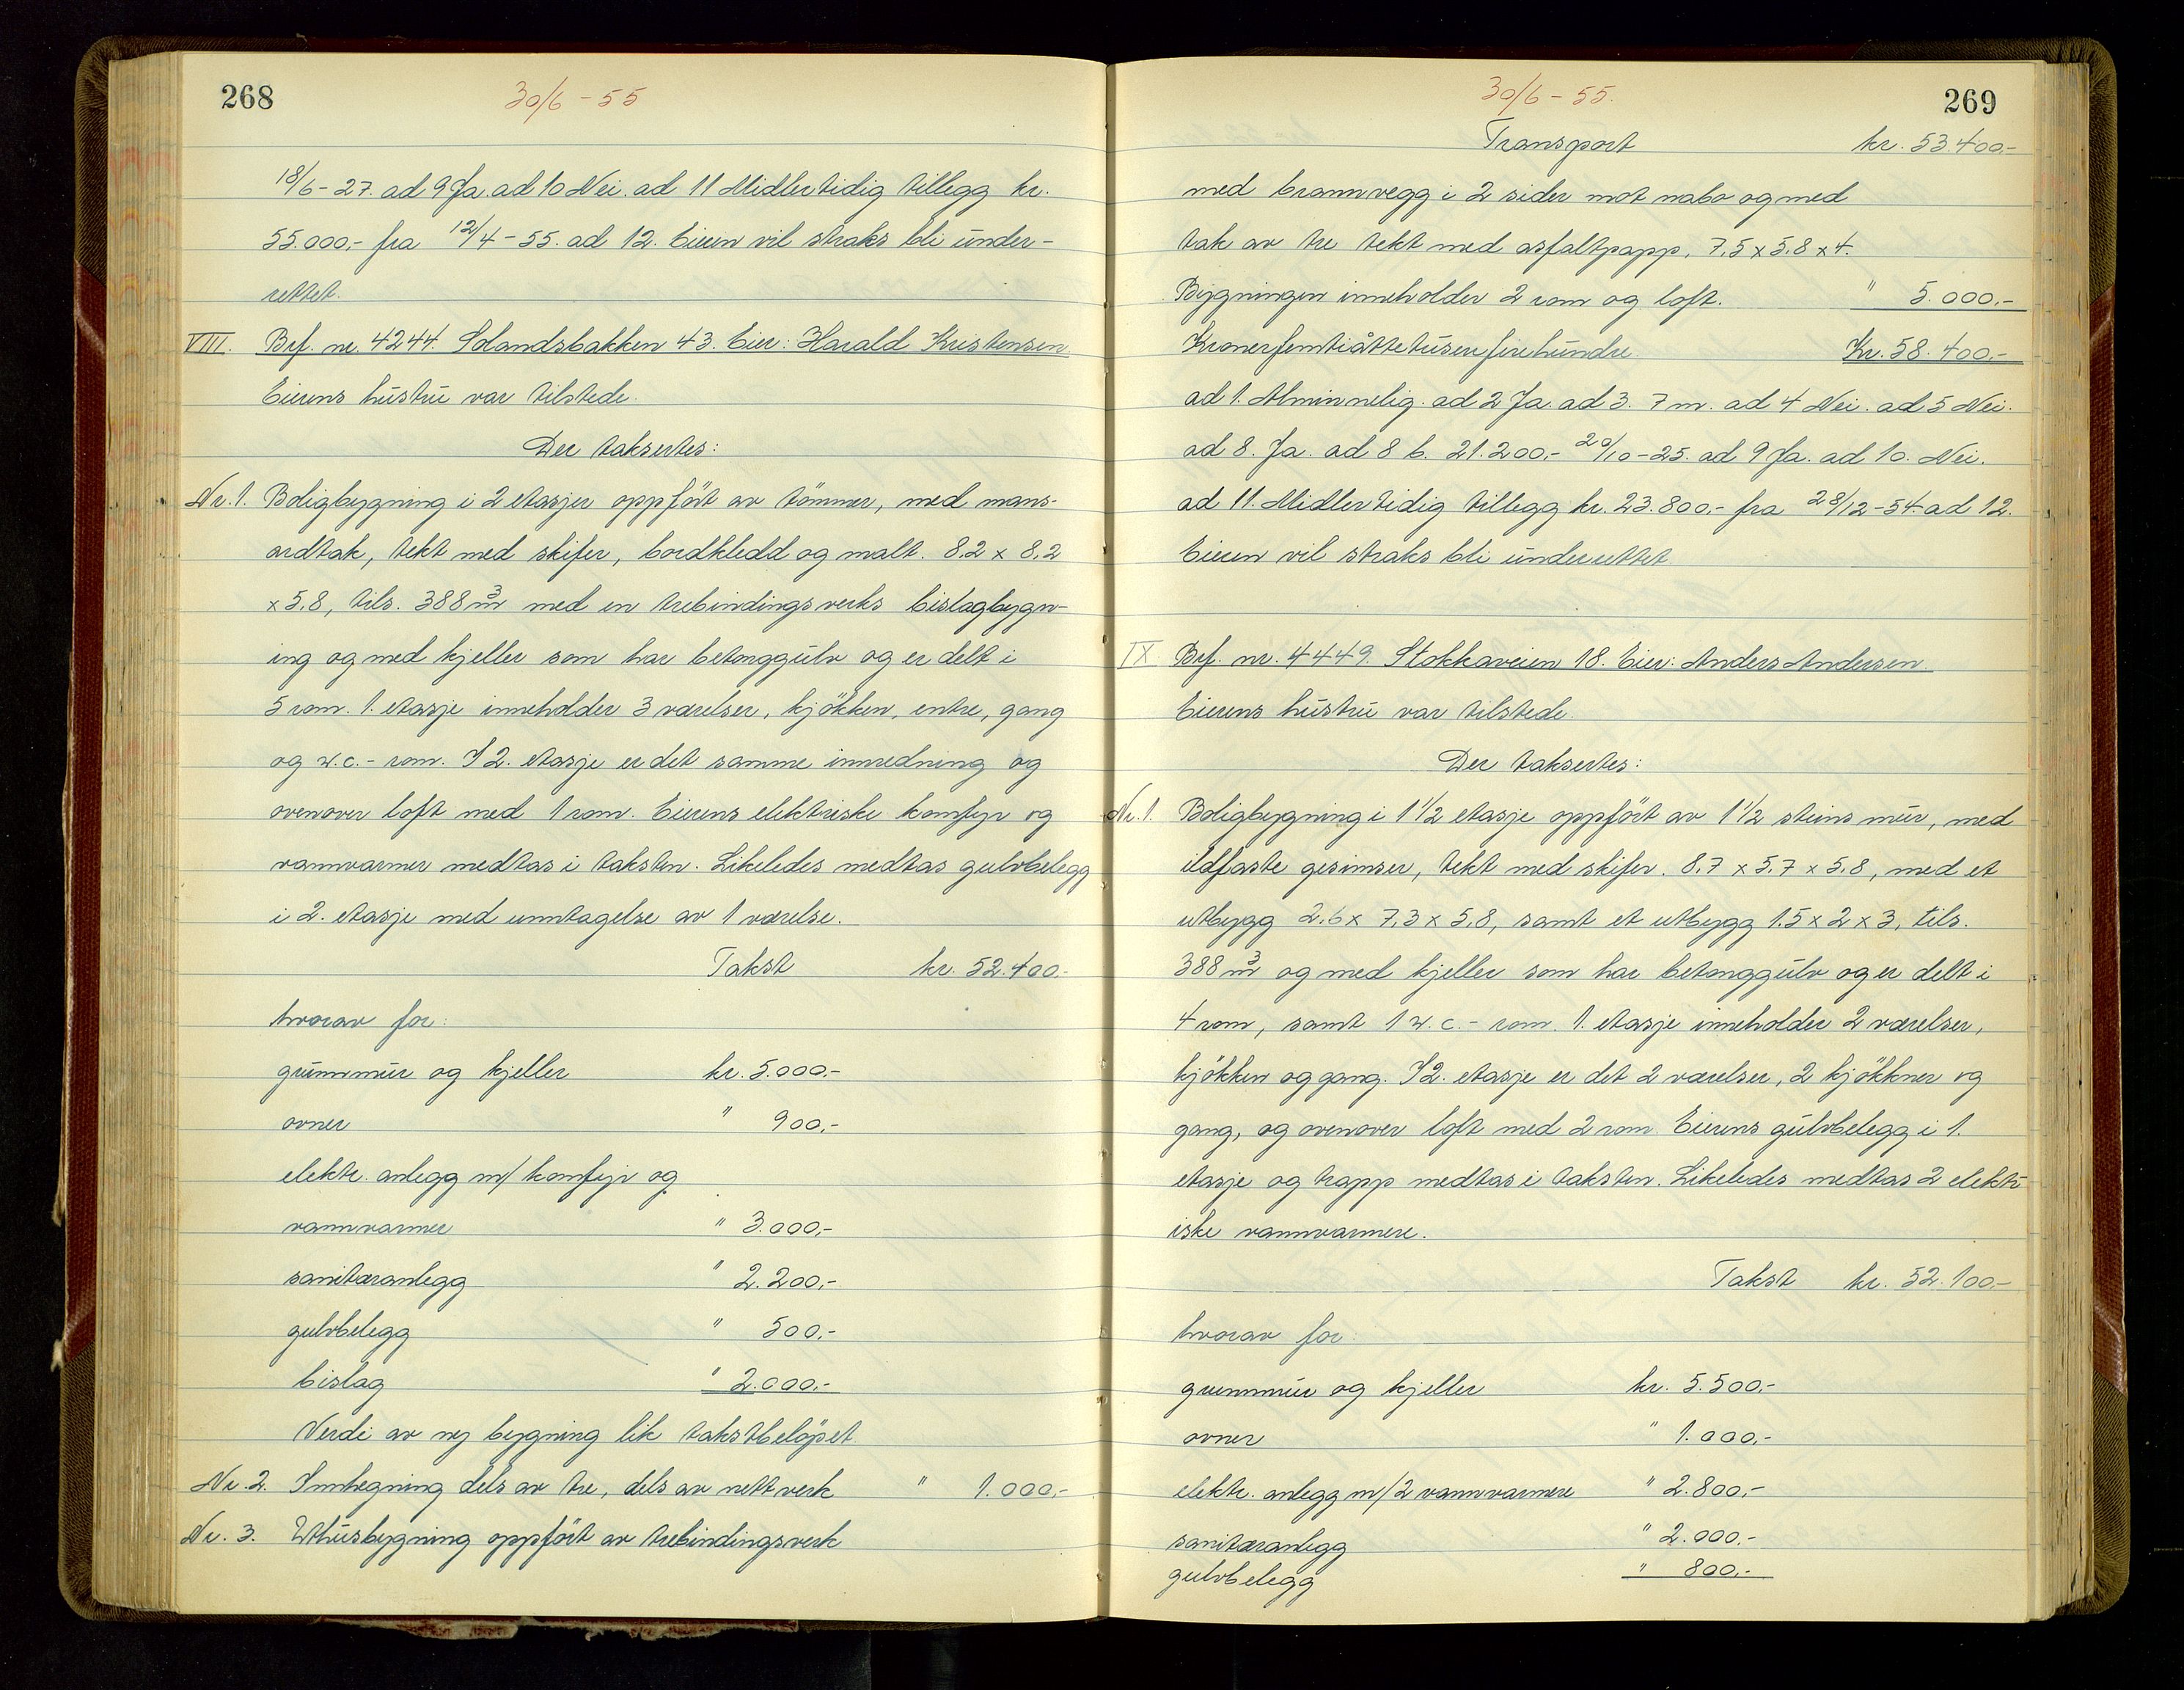 268
30/6 - 55
18/6 - 27. ad 9 Ja. ad 10 Nei. ad 11 Midlertidig tillegg kr.
55.000,- fra 12/4 - 55. ad 12. Eieren vil straks bli under-
rettet.
VIII. Brf. nr. 4244. Solandsbakken 43. Eier: Harald Kristensen
Eierens hustru var tilstede.
Der taksertes:
Nr. 1. Boligbygning i 2 etasjer oppfört av tömmer, med mans-
ardtak, tekt med skifer, bordkledd og malt. 8,2 x 8,2
x 5,8, tils. 388 m3 med en trebindingsverks bislagbygn-
ing og med kjeller som har betonggulv og er delt i
5 rom. 1. etasje inneholder 3 værelser, kjökken, entre, gang
og w.c.- rom. I 2. etasje er det samme innredning og
ovenover loft med 1 rom. Eierens elektriske komfyr og
vannvarmer medtas i taksten. Likeledes medtas gulvbelegg
i 2. etasje med unntagelse av 1 værelse.
Takst kr. 52.400.-
hvorav for:
grunnmur og kjeller kr. 5.000.-
ovner " 900,-
elektr. anlegg m/ komfyr og
vannvarmer " 3.000,-
sanitæranlegg " 2.200,-
gulvbelegg " 500,-
bislag " 2.000,-
Verdi av ny bygning lik takstbelöpet
Nr. 2. Innhegning dels av tre, dels av nettverk " 1.000,-
Nr. 3. Uthusbygning oppfört av trebindingsverk
269
30/6 - 55.
Transport kr. 53.400.-
med brannvegg i 2 sider mot nabo og med
tak av tre tekt med asfaltpapp, 7,5 x 5,8 x 4.
Bygningen inneholder 2 rom og loft. " 5.000,-
Kronerfemtiåttetusenfirehundre. Kr. 58.400,-
ad 1. Alminnelig. ad 2 Ja. ad 3. 7 m. ad 4 Nei. ad 5 Nei.
ad 8. Ja. ad 8 b. 21.200,- 20/10 - 25. ad 9 Ja. ad 10. Nei.
ad 11. Midlertidig tillegg kr. 23.800,- fra 28/12 - 54 ad 12.
Eieren vil straks bli underrettet.
IX Brf. nr. 4449. Stokkaveien 18. Eier: Anders Andersen
Eierens hustru var tilstede.
Der taksertes:
Nr. 1. Boligbygning i 1 1/2 etasje oppfört av 1 1/2 steins mur, med
ildfaste gesimser, tekt med skifer. 8,7 x 5,7 x 5,8, med et
utbygg 2,6 x 7,3 x 5,8, samt et utbygg 1.5 x 2 x 3, tils.
388 m3 og med kjeller som har betonggulv og er delt i
4 rom, samt 1 w.c.- rom. 1. etasje inneholder 2 værelser,
kjökken og gang. I 2. etasje er det 2 værelser, 2 kjökkner og
gang, og ovenover loft med 2 rom. Eierens gulvbelegg i 1.
etasje og trapp medtas i taksten. Likeledes medtas 2 elektr
iske vannvarmere.
Takst kr. 52.100,-
hvorav for:
grunnmur og kjeller kr. 5.500,-
ovner " 1.000,-
elektr. anlegg m/2 vannvarmere " 2.800,-
sanitæranlegg " 2.000,-
gulvbelegg " 800,-